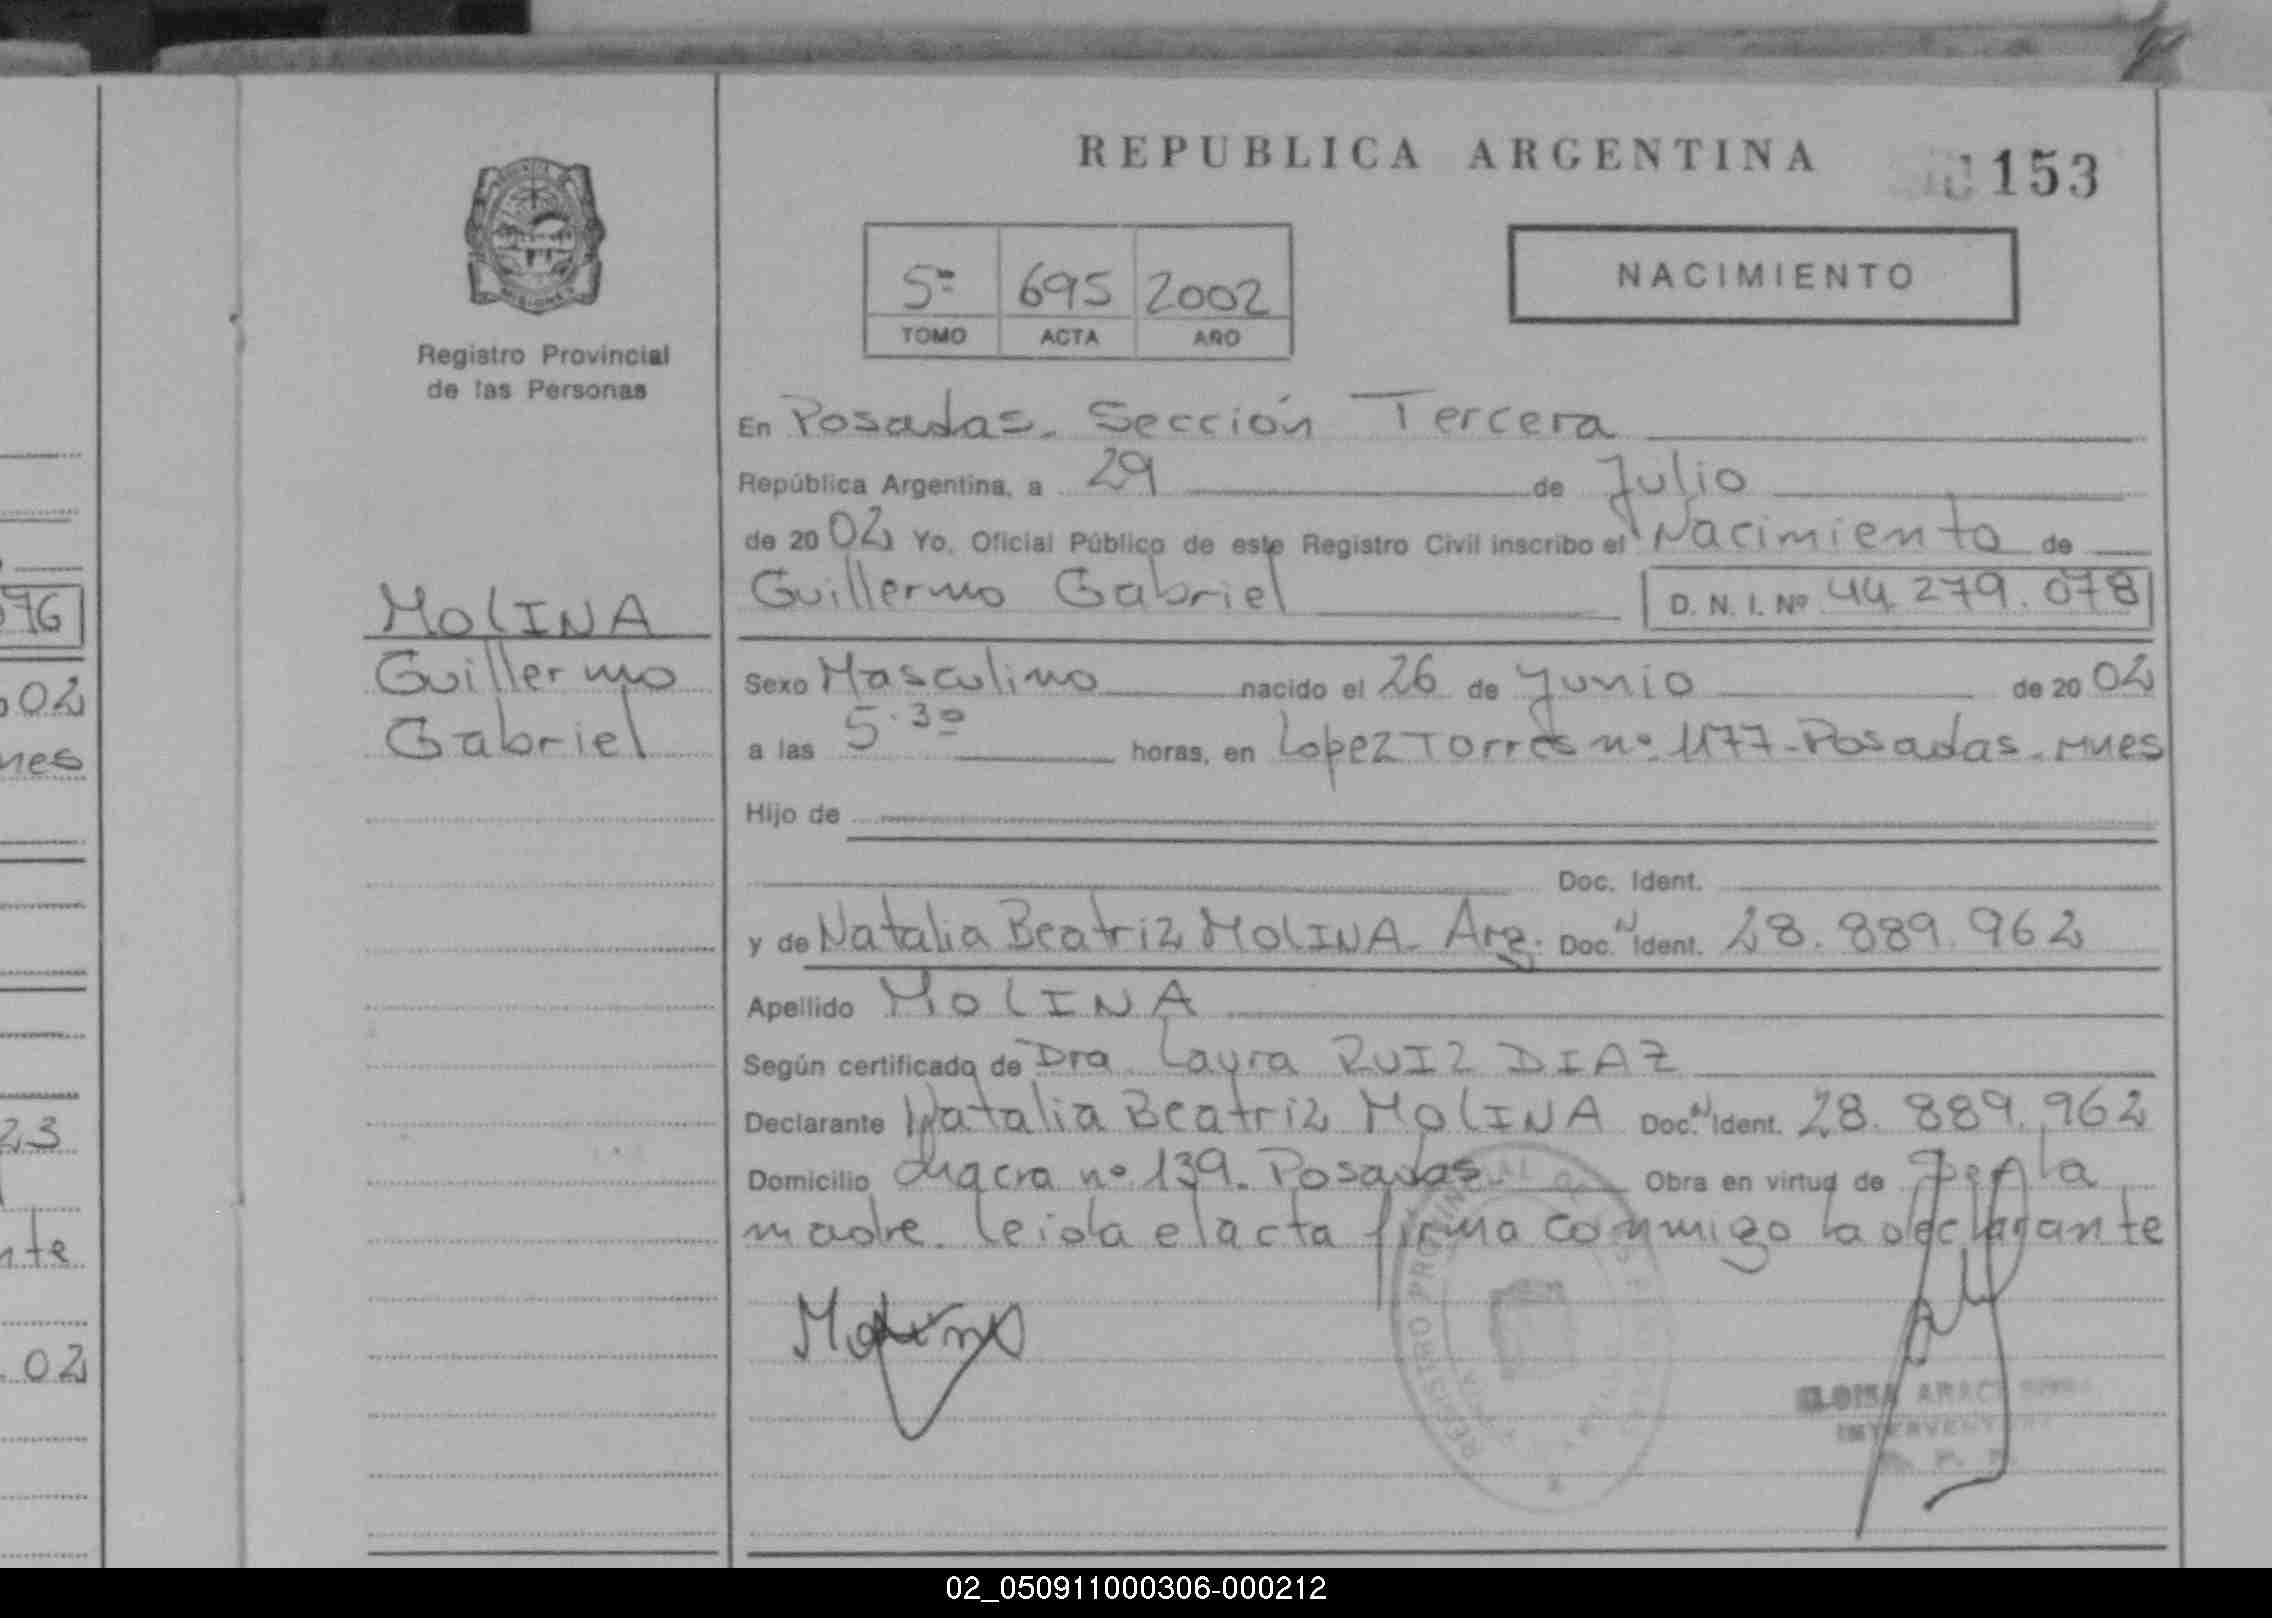 REPUBLICA ARGENTINA
153
5º 695 2002
TOMO ACTA AÑO
NACIMIENTO
MISIONES
Registro Provincial
de las Personas
MOLINA
Guillermo
Gabriel
En Posadas. Sección Tercera
República Argentina, a 29 de Julio
de 2002 Yo, Oficial Público de este Registro Civil inscribo el Nacimiento de
Guillermo Gabriel D. N. I. Nº 44.279.078
Sexo Masculino nacido el 26 de Junio de 2002
a las 5.30 horas, en Lopez Torres nº 1177-Posadas-Mnes
Hijo de
Doc. Ident.
y de Natalia Beatriz MOLINA. Arg. Doc. N Ident. 28.889.962
Apellido MOLINA
Según certificado de Dra. Laura RUIZ DIAZ
Declarante Natalia Beatriz MOLINA Doc. N Ident. 28.889.962
Domicilio chacra nº 139. Posadas Obra en virtud de ser la
madre. leida el acta firma conmigo la declarante
Molina
REGISTRO PROVINCIAL DE LAS PERSONAS
ELOISA
INTERVENTORA
076
02
nes
23
nte
02
02_050911000306-000212